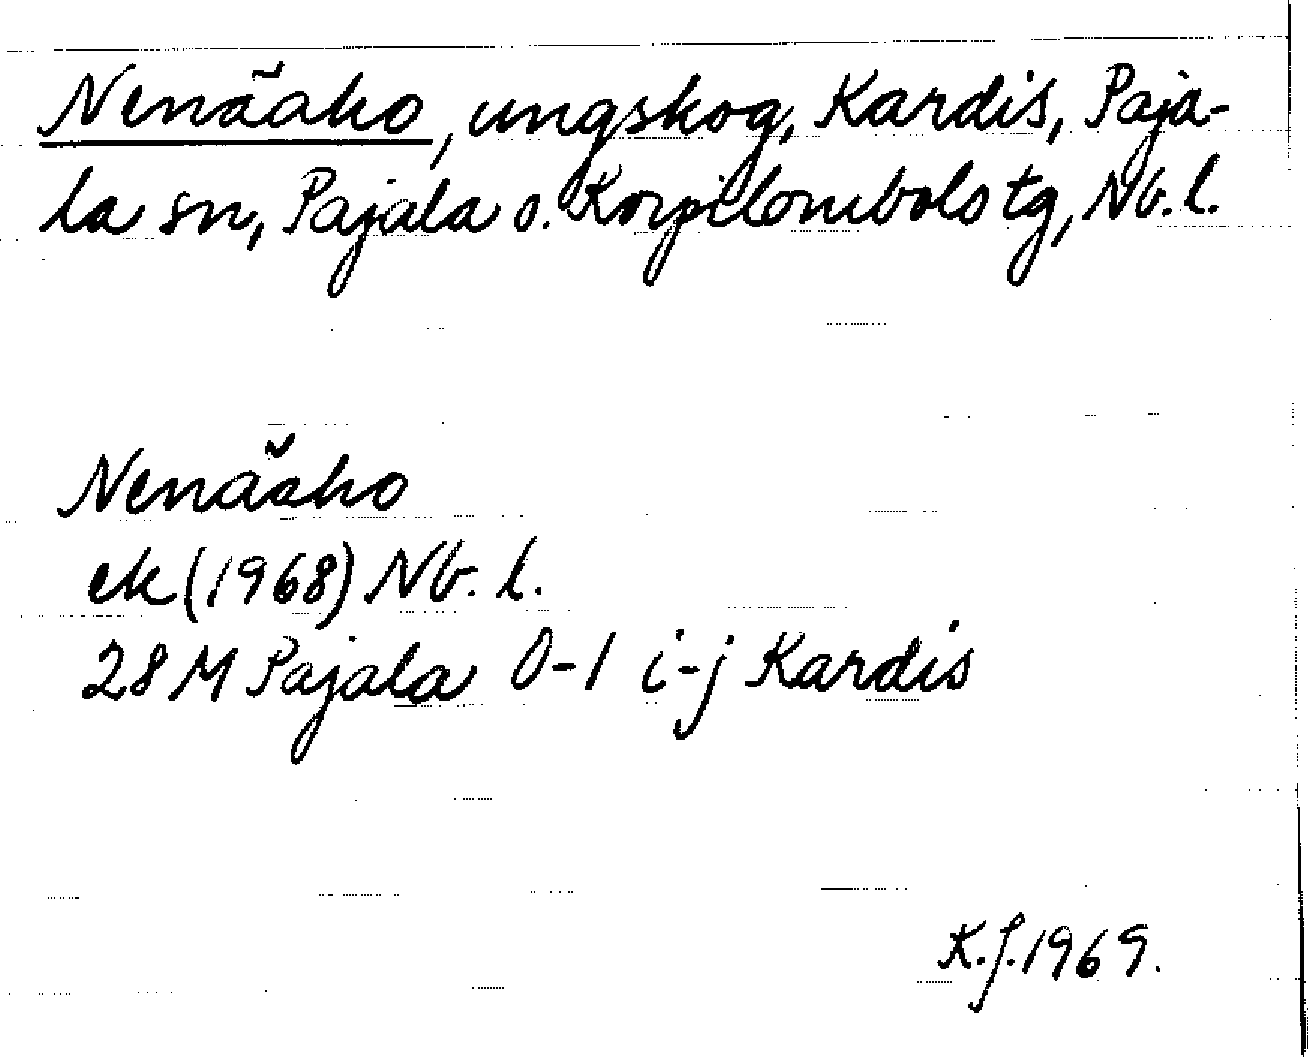 Nenäaho, ungskog, Kardis, Paja-
la sn, Pajala o. Korpilombolo tg, Nb. l.
Nenäaho
ek (1968) Nb. l.
28 M Pajala 0-1 i-j Kardis
K.J. 1969.